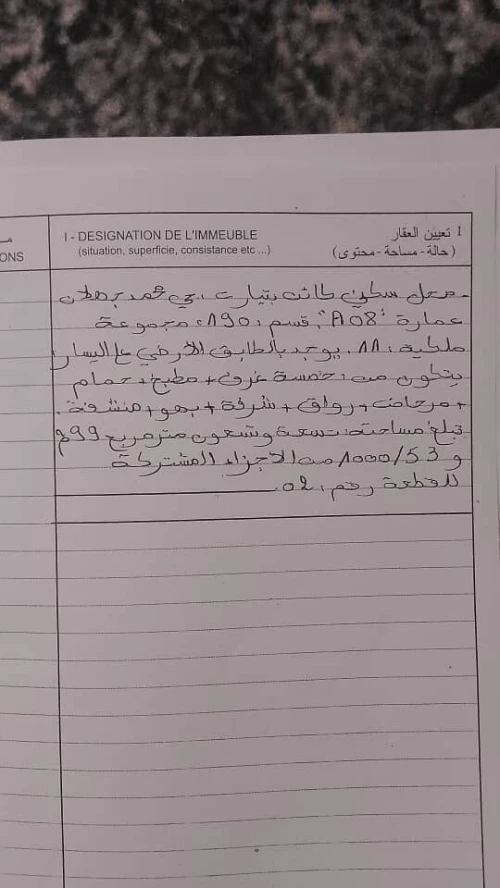 I تعيين العقار
(حالة - مساحة - محتوى)
I - DESIGNATION DE L'IMMEUBLE
(situation, superficie, consistance etc ...)
ONS
محل سكني كائن بتيارت، حي محمد
عمارة "A08"، قسم: 190، مجموعة
ملكية: 11. يوجد بالطابق الأرضي على اليسار
يتكون من: خمسة غرف + مطبخ + حمام
+ مرحاض + رواق + شرفة + بهو + منشفة.
تبلغ مساحته: تسعة وتسعون متر مربع 99م²
و 1000/53 من الاجزاء المشتركة
للقطعة رقم: 02.